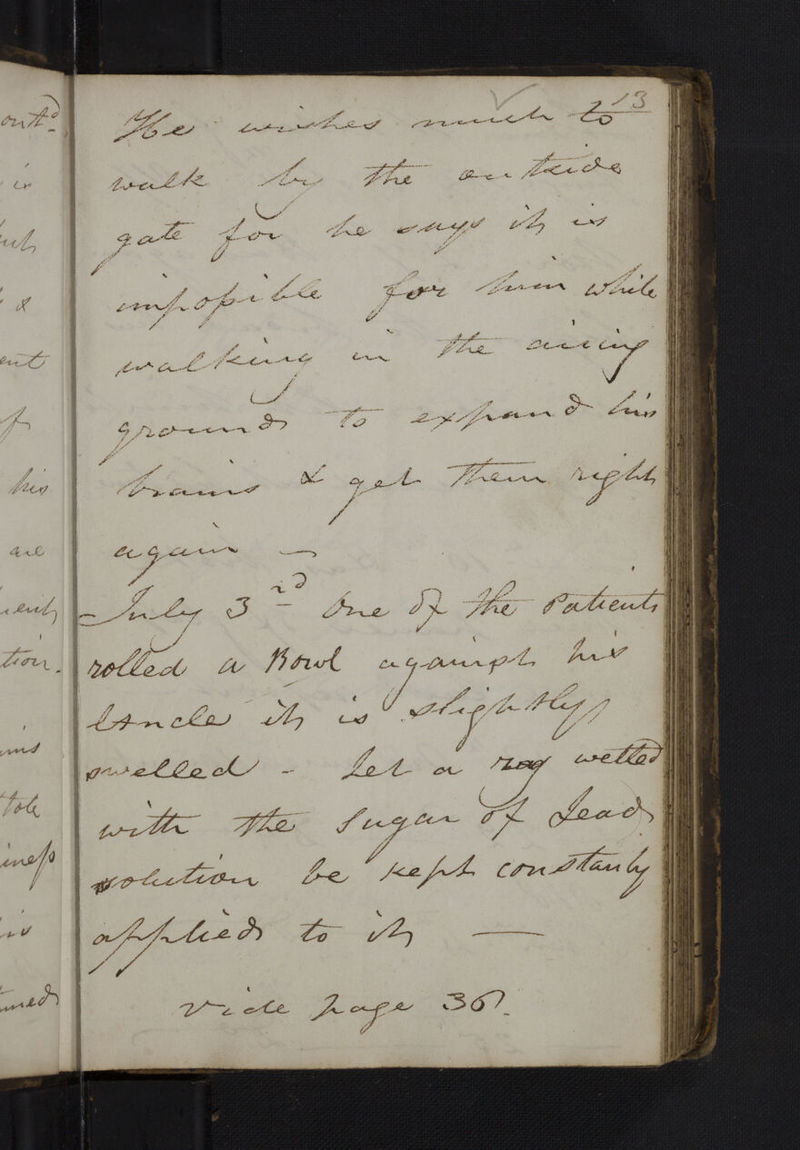 13
He wishes much to
walk by the outside
gate for he says it is
impossible for him while
walking in the airing
grounds to expand his
brains & get them right
again —
July 3rd One of the Patients
rolled a Bowl against his
Ancle it is slightly
swelled - Let a rag wetted
with the Sugar of Lead
solution be kept constanly
applied to it —
vide page 36.
ont'd
is
&
ent
of
his
are
tion.